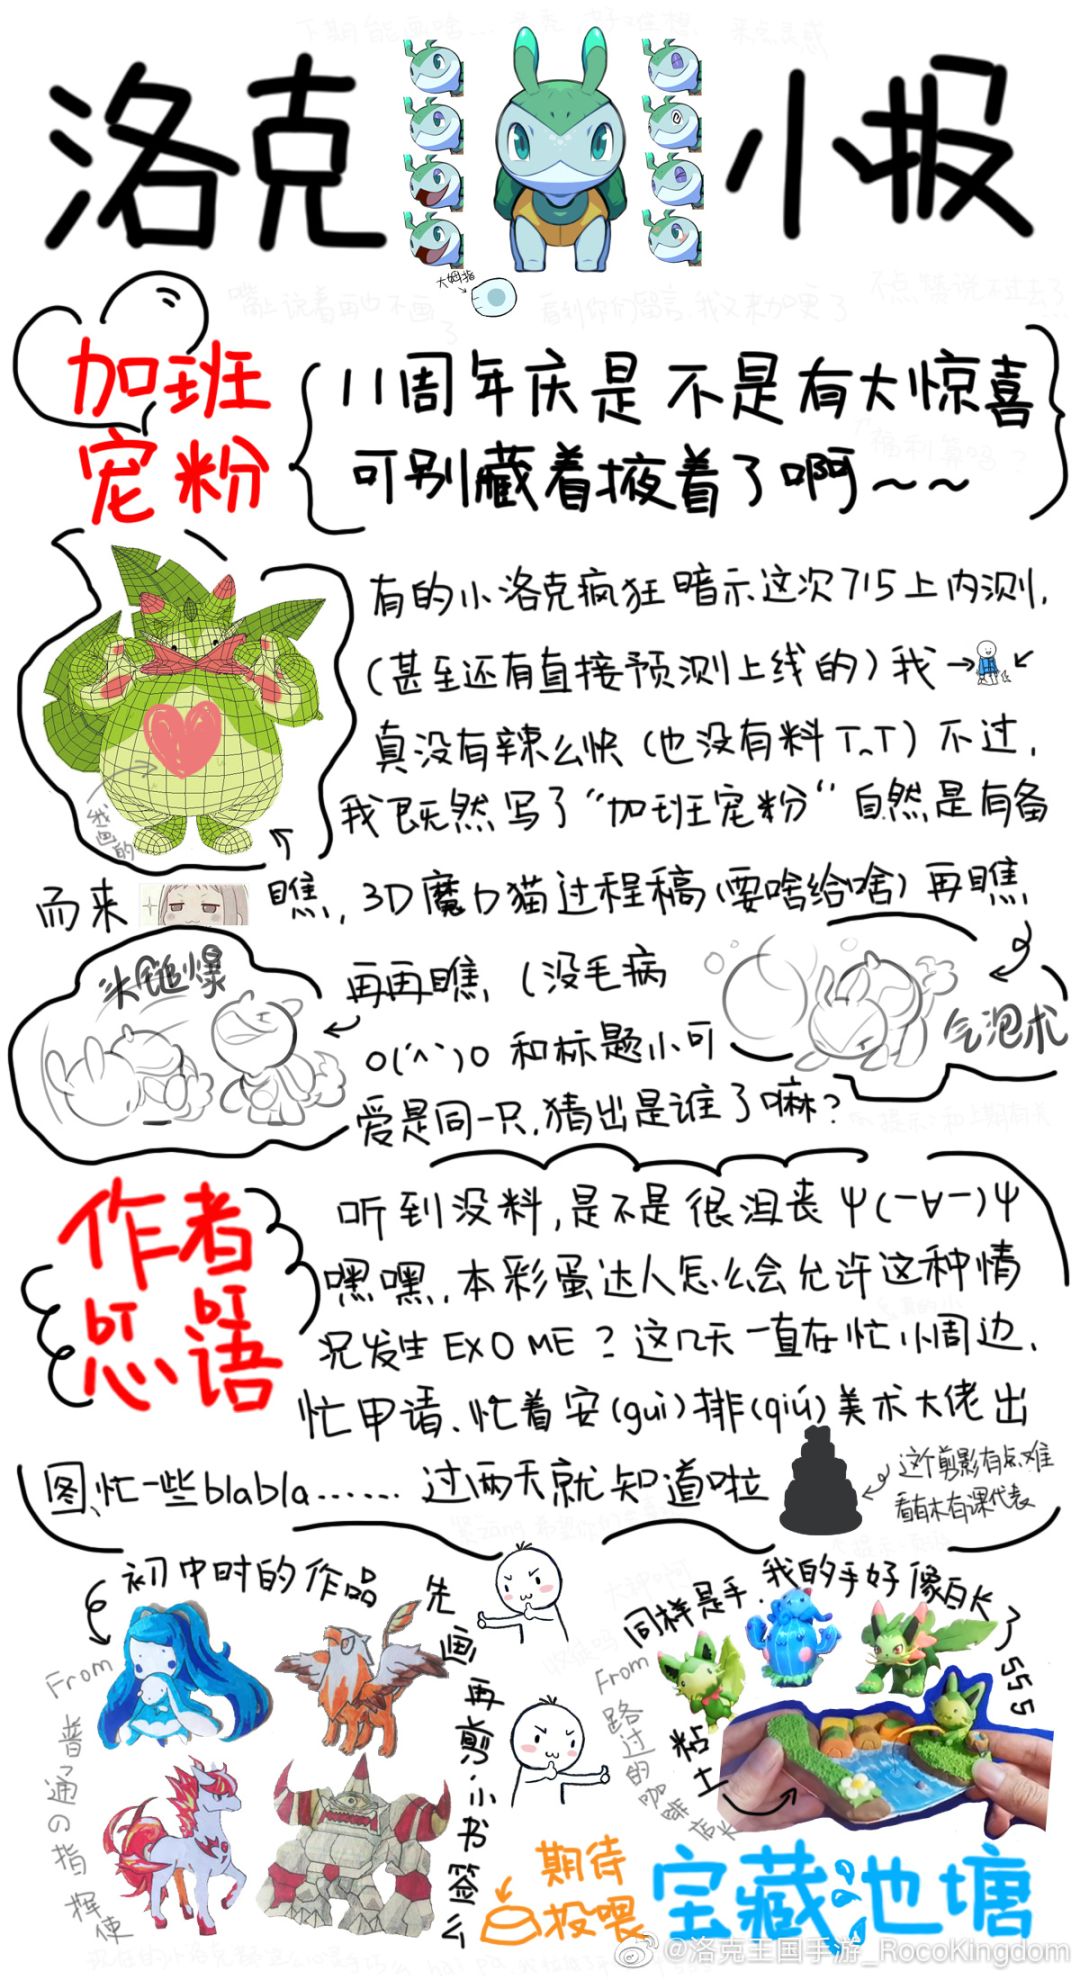 洛克 小报
大姆指
嘴上说着再也不画了 看到你们留言,我又来加更了
加班
宠粉
11周年庆是不是有大惊喜
可别藏着掖着了啊~~
福利算吗?
有的小洛克疯狂暗示这次715上内测,
(甚至还有直接预测上线的)我
真没有辣么快(也没有料T.T)不过,
我既然写了“加班宠粉”自然是有备
我画的
而来
瞧, 3D魔力猫过程稿(要啥给啥)再瞧,
头锤爆
再再瞧, (没毛病
气泡术
o(´^`)o 和标题小可
爱是同一只,猜出是谁了嘛?
提示:和上期有关
作者
忒语
听到没料,是不是很沮丧Ψ(一∀一)Ψ
嘿嘿,本彩蛋达人怎么会允许这种情
况发生EXO ME?这几天一直在忙小周边,
忙申请、忙着安(gui)排(qiú)美术大佬出
图、忙一些blabla…… 过两天就知道啦
这个剪影有点难
看有木有课代表
初中时的作品
From
普通の指挥使
先画再剪,小书签么
同样是手,我的手好像白长了555
From
路过的咖啡店长
粘土
期待
投喂
宝藏池塘
@洛克王国手游_RocoKingdom